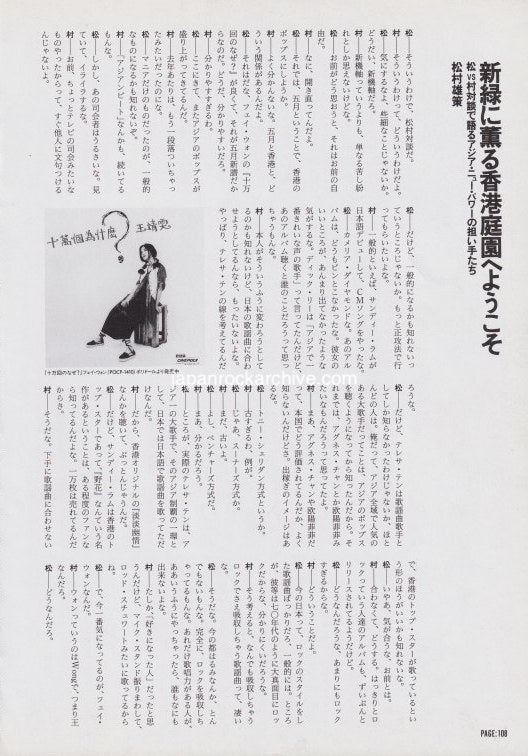 新緑に薫る香港庭園へようこそ
松vs村対談で語るアジアン・ニュー・パワーの担い手たち
松村雄策
松――そういうわけで、松村対談だ。
村――そういうわけって、どういうわけだよ。
松――気にするなよ、些細なことじゃないか。
どうだい、新機軸だろ。
村――新機軸っていうよりも、単なる苦し紛
れとしか思えないけどな。
松――お前がどう思おうと、それはお前の自
由だ。
村――なに、開き直ってんだよ。
松――それでは、五月ということで、香港の
ポップスにしようか。
村――よく分かんないな。五月と香港と、ど
ういう関係があるんだよ。
松――それはだな、フェイ・ウォンの『十万
回のなぜ?』が良くて、それが五月新譜だか
らだな。どうだ、分かりやすいだろ。
村――分かりやすすぎるわ。
松――ここにきて、またアジアのポップスが
盛り上がってきてるんだ。
村――去年あたりは、もう一段落ついちゃっ
たみたいだったのにな。
松――マニアだけのものだったのが、一般的
なものになるかも知れないぞ。
村――「アジアンビート」なんかも、続いてる
もんな。
松――しかし、あの司会者はうるさいな。見
ていて、イライラするな。
村――お前、ちょっとテレビの司会みたいな
ものやったからって、すぐ他人に文句つける
んじゃないよ。
松――だけど、一般的になるかも知れないっ
ていうところじゃないか。もっと正攻法で行
ってもらいたいよな。
村――一般的といえば、サンディー・ラムが
日本語デビューして、CMソングをやったな。
松――カメリア・ダイヤモンドな。あのアル
バムは、どうもピンとこなかったな。彼女の
いいところが、あんまり出てなかったような
気がするな。ディック・リーは「アジアで一
番きれいな声の歌手」って言ってたんだけど、
あのアルバム聴くと誰のことだろうって思っ
ちゃうもんな。
村――本人がそういうふうに変わろうとして
るのかも知れないけど、日本の歌謡曲に合わ
せようとしてるんなら、もったいないよな。
やっぱり、テレサ・テンの線を考えてるんだ
十萬個為什麼? 王靖雯
CINEPOLY
『十万回のなぜ?』フェイ・ウォン(POCP-1410) ポリドールより発売中
japanrockarchive.com
ろうな。
松――だけど、テレサ・テンは歌謡曲歌手と
してしか知らなかったわけじゃないか、ほと
んどの人は。俺だって、アジア全域で人気の
ある大歌手だってことは、アジアのポップス
を聴くようになってから知ったんだから。そ
れまでは、アグネス・チャンとか欧陽菲菲み
たいなもんだろうって思ってたよ。
村――まあ、アグネス・チャンや欧陽菲菲だ
って、本国でどう評価されてるんだか、よく
知らないんだけどさ。出稼ぎのイメージはあ
るよな。
松――トニー・シェリダン方式というか。
村――古すぎるわ、例が。
松――じゃあ、スーナーズ方式か。
村――まだ、古い。
松――よし、ベンチャーズ方式だ。
村――まあ、分かるだろう。
松――ところが、実際のテレサ・テンは、ア
ジア一の大歌手で、そのアジア制覇の一環と
して、日本では日本語で歌謡曲を歌ってただ
けなんだ。
村――だから、香港オリジナルの『淡淡幽情』
なんかを聴いて、ぶっとんじゃうんだ。
松――だけど、サンディー・ラムは香港のト
ップ・スターであって、『野花』なんていう名
作があるということは、ある程度のファンな
ら知ってるんだよな。一万枚は売れてるんだ
からさ。
村――そうだな。下手に歌謡曲に合わせない
で、香港のトップ・スターが歌ってるってい
う形のほうがいいかも知れないな。
松――いやあ、気が合うな、お前とは。
村――合わなくて、どうする。はっきりとロ
ックっていう人達のアルバムも、ずいぶんと
リリースされてるようだけど。
松――どうなんだろうな、あまりにもロック
すぎるからな。
村――どういうことだよ。
松――今の日本って、ロックのスタイルをし
た歌謡曲ばっかりだろ、一般的には。ところ
が、彼等は七〇年代のように大真面目にロッ
クだからな。分かりにくいだろうな。
村――そう考えると、なんでも吸収しちゃう
ロックでさえ吸収しちゃう歌謡曲って、凄い
な。
松――そうだな。今の都はるみなんか、とん
でもないもんな。完全に、ロックを吸収しち
ゃってるもんな。あれだけ歌唱力がある人が、
ああいうふうにやっちゃったら、誰もなにも
出来ないよな。
村――たしか、「好きになった人」だったと思
うけど、マイク・スタンド振りまわして、
ロッド・スチュワートみたいに歌ってるから
ね。
松――で、今一番気になってるのが、フェイ・
ウォンなんだ。
村――ウォンっていうのはWongで、つまり王
なんだろ。
松――どうなんだろ。
PAGE:108